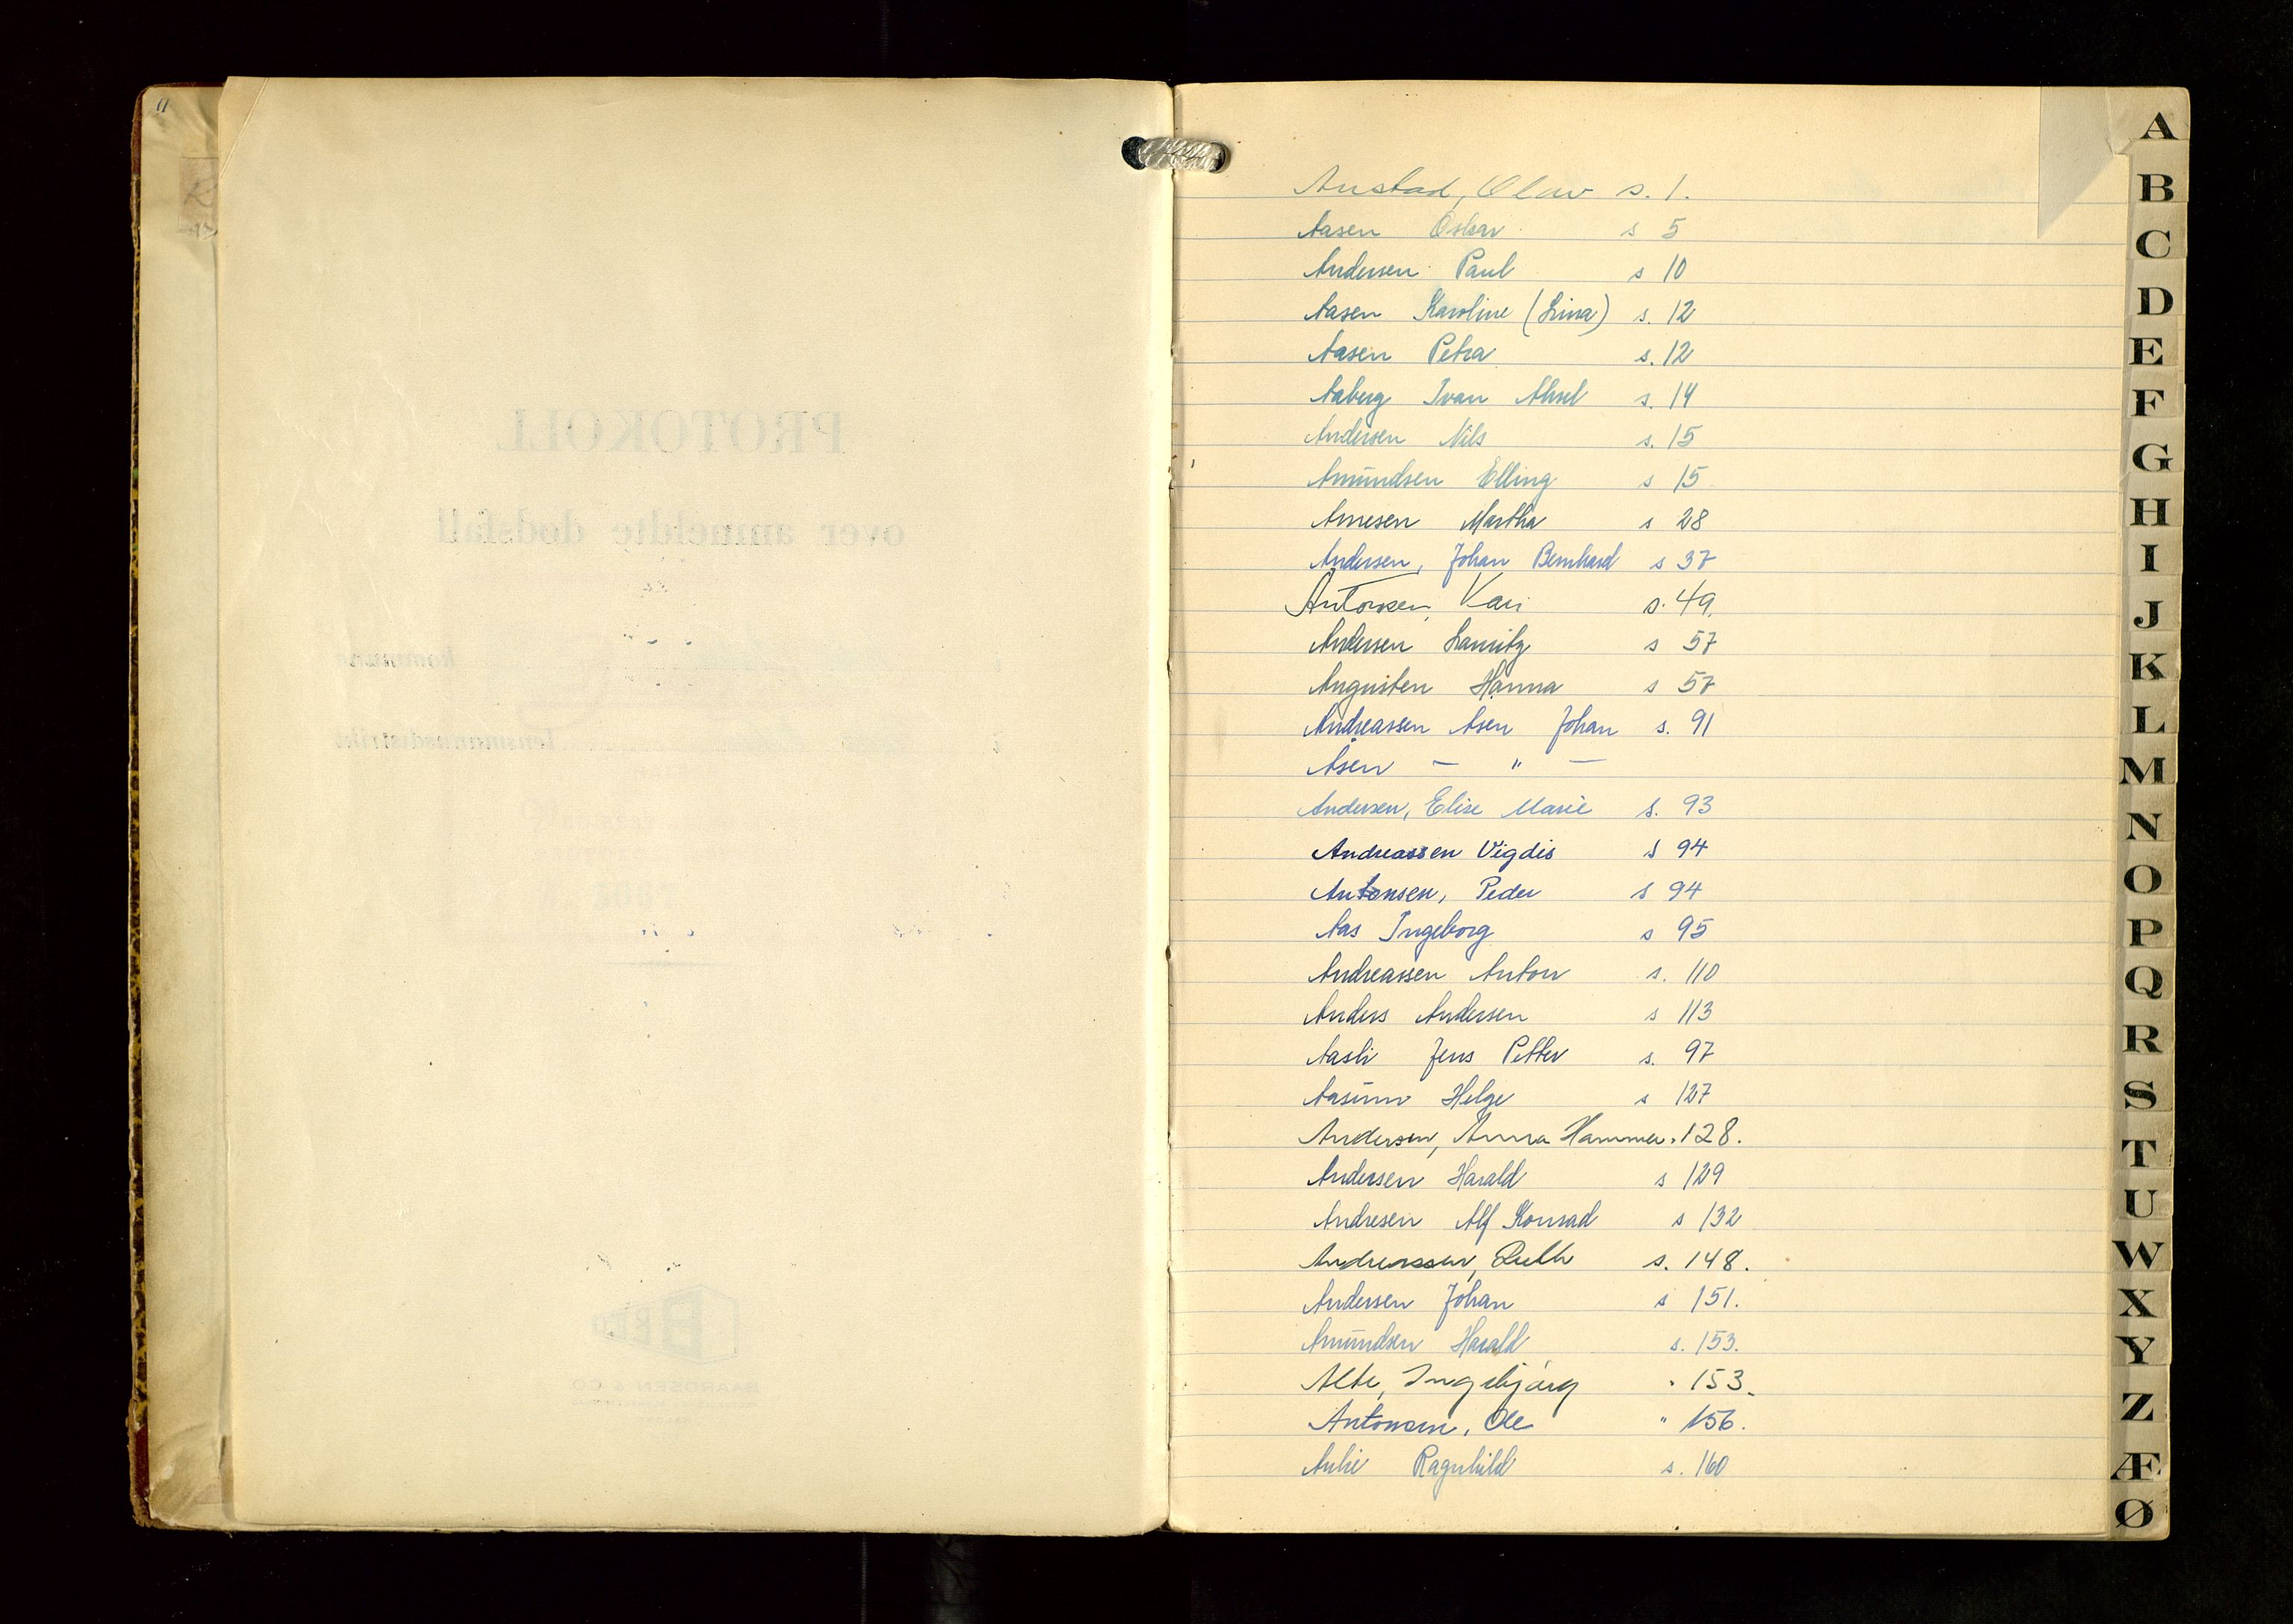 PROTOKOLL
over anmeldte dødsfall
i kommune
i lensmannsdistrikt
Anstad, Olav s. 1.
Aasen Oskar s 5
Andersen Paul s 10
Aasen Karoline (Lina) s. 12
Aasen Petra s. 12
Aaberg Ivan Aksel s. 14
Andersen Nils s. 15
Amundsen Elling s 15
Arnesen Martha s 28
Andersen, Johan Bernhard s 37
Antonsen, Kari s. 49.
Andersen Lauritz s 57
Augusten Hanna s 57
Andreassen Asen Johan s. 91
Åsen — " —
Andersen, Elise Marie s. 93
Andreassen Vigdis s 94
Antonsen, Peder s 94
Aas Ingeborg s 95
Andreassen Anton s. 110
Anders Andersen s 113
Aasli Jens Petter s. 97
Aasum Helge s 127
Andersen, Anna Hammer. 128.
Andersen Harald s 129
Andresen Alf Konrad s 132
Andreassen, Ruth s. 148.
Andersen Johan s 151.
Amundsen Harald s. 153.
Alte, Ingebjørg " 153.
Antonsen, Ole " 156.
Aulie Ragnhild s. 160
A
B
C
D
E
F
G
H
I
J
K
L
M
N
O
P
Q
R
S
T
U
W
X
Y
Z
Æ
Ø